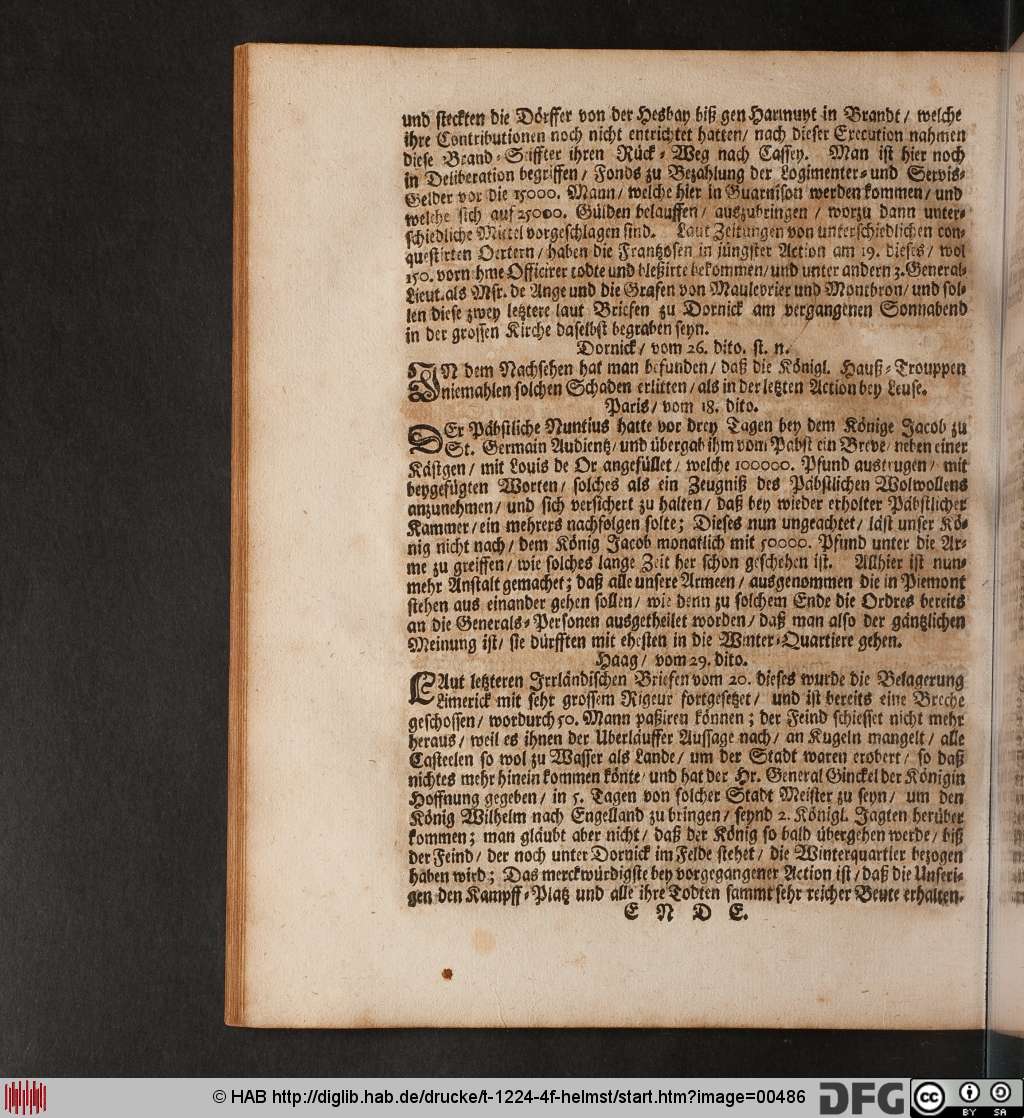 und steckten die Dörffer von der Hesbay biß gen Harmuyt in Brandt / welche
ihre Contributionen noch nicht entrichtet hatten / nach dieser Execution nahmen
diese Brand-Stiffter ihren Rück-Weg nach Cassey. Man ist hier noch
in Deliberation begriffen / Fonds zu Bezahlung der Logimenter- und Servis-
Gelder vor die 15000. Mann / welche hier in Guarnison werden kommen / und
welche sich auf 25000. Gülden belauffen / auszubringen / worzu dann unter-
schiedliche Mittel vorgeschlagen sind. Laut Zeitungen von unterschiedlichen con-
questirten Oertern / haben die Frantzosen in jüngster Action am 19. dieses / wol
150. vornehme Officirer todte und bleßirte bekommen / und unter andern 3. General-
Lieut. als Msr. de Ange und die Grafen von Maulevrier und Montbron / und sol-
len diese zwey letztere laut Briefen zu Dornick am vergangenen Sonnabend
in der grossen Kirche daselbst begraben seyn.
Dornick / vom 26. dito. st. n.
IN dem Nachsehen hat man befunden / daß die Königl. Hauß-Trouppen
niemahlen solchen Schaden erlitten / als in der letzten Action bey Leuse.
Paris / vom 18. dito.
DEr Päbstliche Nuntius hatte vor drey Tagen bey dem Könige Jacob zu
St. Germain Audientz / und übergab ihm vom Pabst ein Breve / neben einer
Kästgen / mit Louis de Or angefüllet / welche 100000. Pfund austrugen / mit
beygefügten Worten / solches als ein Zeugniß des Päbstlichen Wolwollens
anzunehmen / und sich versichert zu halten / daß bey wieder erholter Päbstlicher
Kammer / ein mehrers nachfolgen solte; Dieses nun ungeachtet / läst unser Kö-
nig nicht nach / dem König Jacob monatlich mit 50000. Pfund unter die Ar-
me zu greiffen / wie solches lange Zeit her schon geschehen ist. Allhier ist nun-
mehr Anstalt gemachet; daß alle unsere Armeen / ausgenommen die in Piemont
stehen aus einander gehen sollen / wie denn zu solchem Ende die Ordres bereits
an die Generals-Personen ausgetheilet worden / daß man also der gäntzlichen
Meinung ist / sie dürfften mit ehesten in die Winter-Quartiere gehen.
Haag / vom 29. dito.
LAut letzteren Irrländischen Briefen vom 20. dieses wurde die Belagerung
Limerick mit sehr grossem Rigeur fortgesetzet / und ist bereits eine Breche
geschossen / wordurch 50. Mann paßiren können; der Feind schiesset nicht mehr
heraus / weil es ihnen der Uberläuffer Aussage nach / an Kugeln mangelt / alle
Casteelen so wol zu Wasser als Lande / um der Stadt waren erobert / so daß
nichtes mehr hinein kommen könte / und hat der Hr. General Ginckel der Königin
Hoffnung gegeben / in 5. Tagen von solcher Stadt Meister zu seyn / um den
König Wilhelm nach Engelland zu bringen / seynd 2. Königl. Jagten herüber
kommen; man gläubt aber nicht / daß der König so bald übergehen werde / biß
der Feind / der noch unter Dornick im Felde stehet / die Winterquartier bezogen
haben wird; Das merckwürdigste bey vorgegangener Action ist / daß die Unseri-
gen den Kampff-Platz und alle ihre Todten sammt sehr reicher Beute erhalten.
E N D E.
© HAB http://diglib.hab.de/drucke/t-1224-4f-helmst/start.htm?image=00486
DFG
cc
BY SA